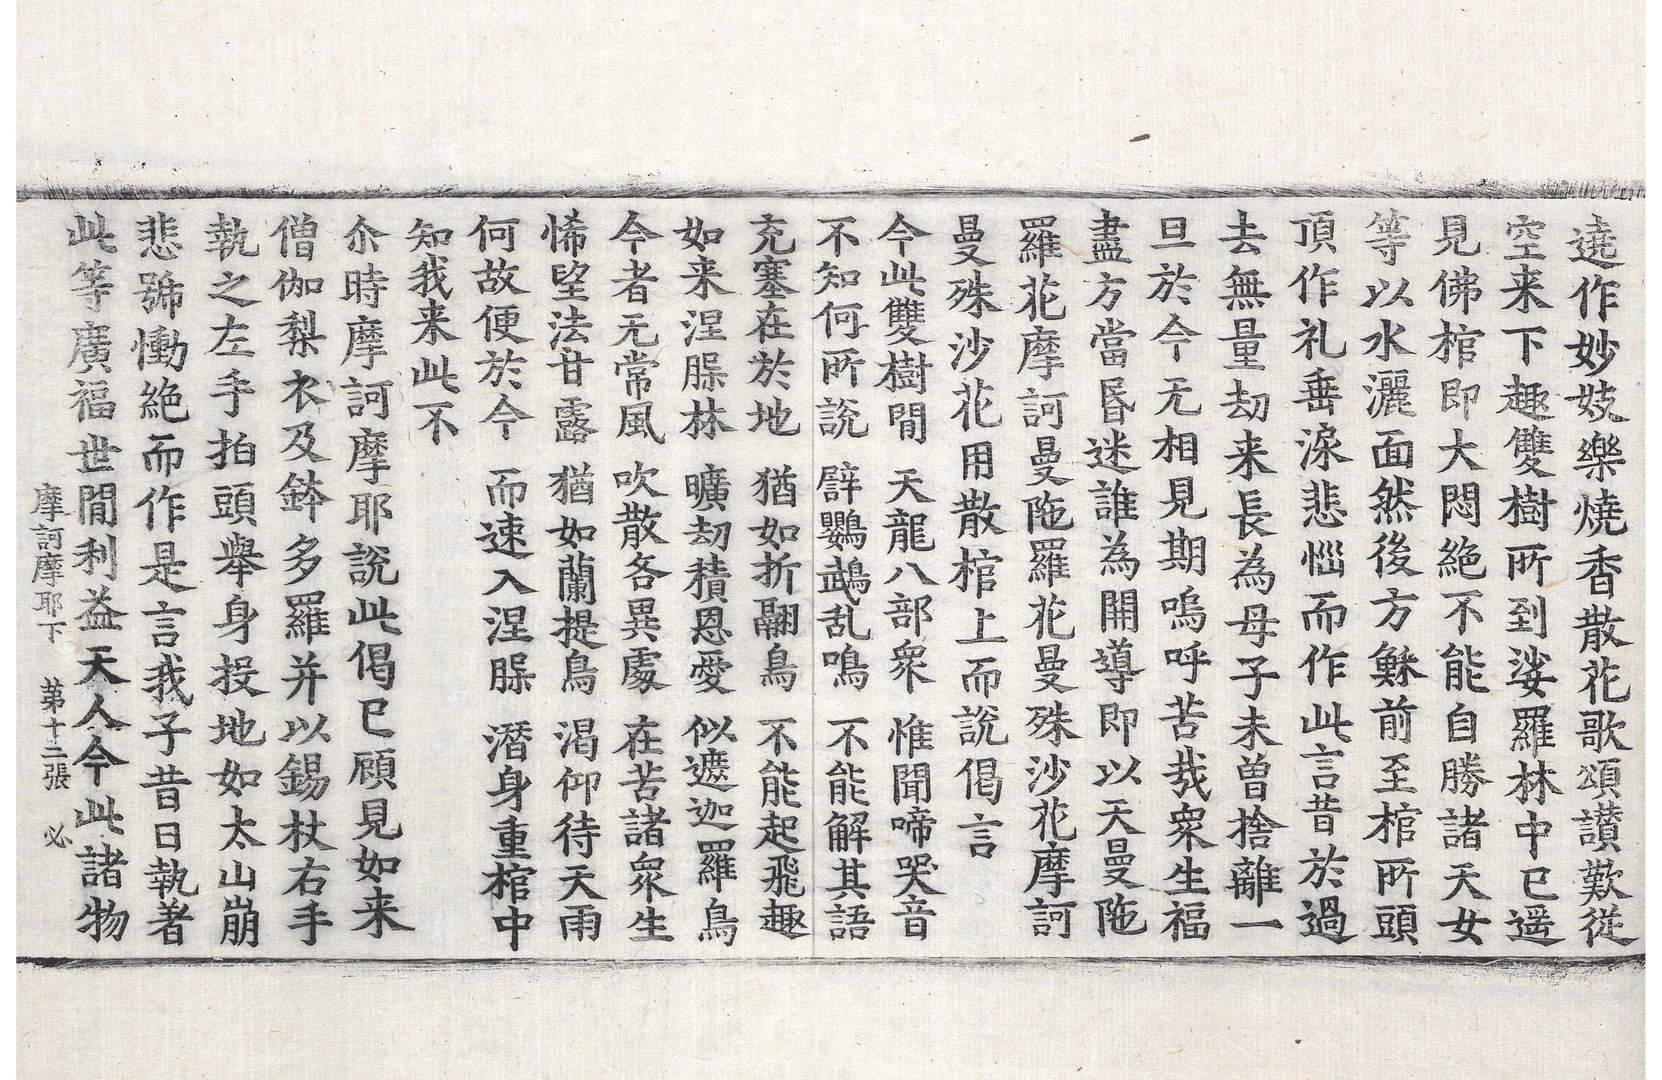 遶作妙妓樂燒香散花歌頌讃歎従
空来下趣雙樹所到娑羅林中已遥
見佛棺即大悶絶不能自勝諸天女
等以水灑面然後方穌前至棺所頭
頂作礼垂淚悲惱而作此言昔於過
去無量劫来長為母子未曾捨離一
旦於今无相見期嗚呼苦㢤衆生福
盡方當昬迷誰為開導即以天曼陁
羅花摩訶曼陁羅花曼殊沙花摩訶
曼殊沙花用散棺上而說偈言
今此雙樹間　天龍八部衆　惟聞啼哭音
不知何所說　譬鸚鵡乱鳴　不能解其語
充塞在於地　猶如折翮鳥　不能起飛趣
如来涅槃林　曠劫積恩愛　似遮迦羅鳥
今者无常風　吹散各異處　在苦諸衆生
悕望法甘露　猶如蘭提鳥　渴仰待天雨
何故便於今　而速入涅槃　潛身重棺中
知我来此不
尒時摩訶摩耶說此偈已顧見如来
僧伽梨衣及鉢多羅并以錫杖右手
執之左手拍頭舉身投地如太山崩
悲號慟絶而作是言我子昔日執著
此等廣福世間利益天人今此諸物
摩訶摩耶下　第十二張　必